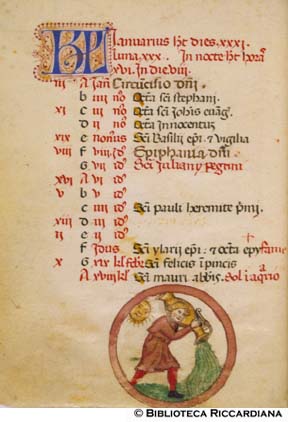 KL Ianuarius ht dies. xxxi.
luna. xxx. In nocte ht horas
xvi. In die viii.
iii A Ian Circucisio dni.
b iiii no Octa sci stephani.
xi c iii no Octa sci Iohis euang.
d ii no Octa Innocentu
xix e nonus Sci Basilii epi. et vigilia
viii f viii id Epiphania dni.
g vii id Sci Iuliani
xvi A vi id
v b v id
c iiii id Sci pauli heremite pimi.
xiii d iii id
ii e ii id
f Idus Sci ylarii epi. et octa epyfanie
x g xix kl febr Sci felicis i pincis
A xviii kl Sci mauri abbis. Sol i aqrio
© BIBLIOTECA RICCARDIANA